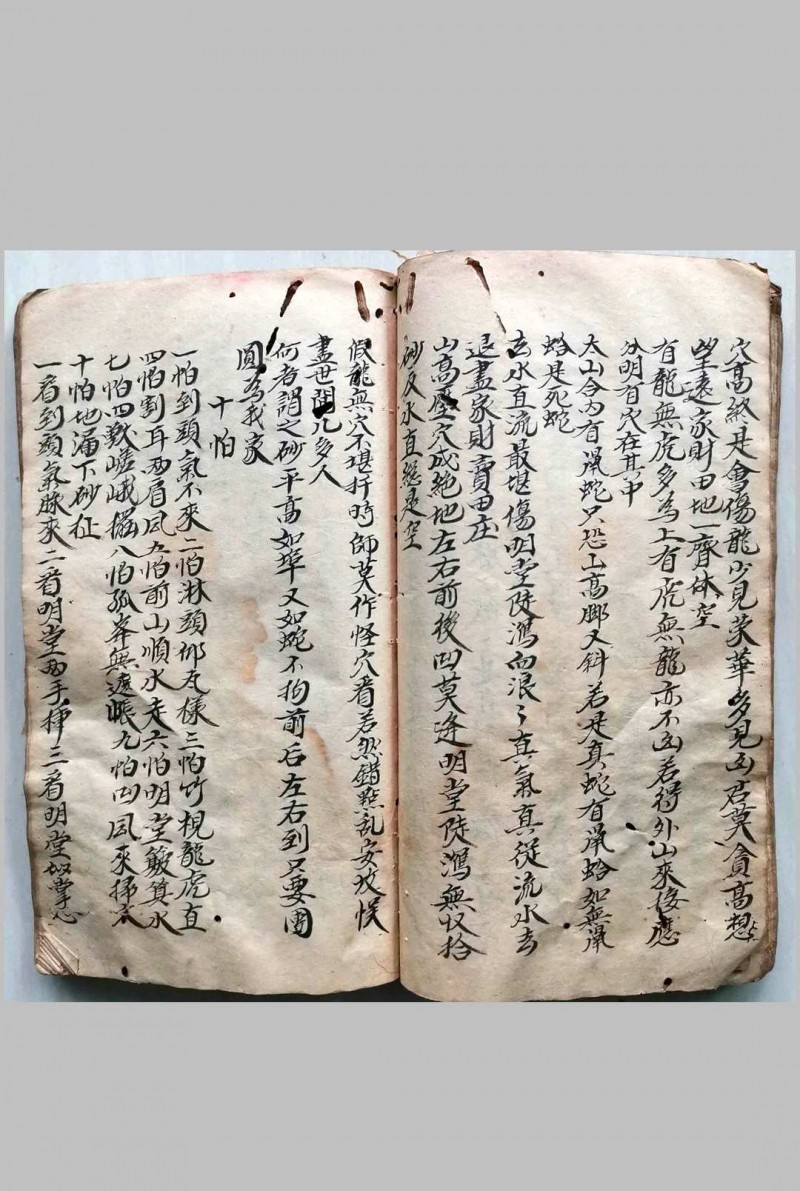 穴高煞是會傷龍少見荣華多見凶君莫貪高想
望遠家財田地一齊休空
有龍無虎多為上有虎無龍亦不凶若得外山來後應
分明有穴在其中
太山合內有湺蛇只恐山高脚又斜若是真蛇有湺蛤如無湺
蛤是死蛇
去水直流最堪傷明堂陡瀉向浪々真氣真從流水去
退盡家財賣田庄
山高壓穴成絶地左右前後凹莫逢明堂陡瀉無收拾
砂反水直緫是空
假龍無穴不堪扦時師莫作怪穴看若然錯㸃乱安坟悮
盡世間几多人
何者謂之砂平高如埠又如蛇不拘前后左右到只要團
圓為我家
十怕
一怕到頭氣不來二怕淋頭仰瓦樣三怕竹梘龍虎直
四怕割耳两肩風五怕前山順水走六怕明堂簸箕水
七怕四獸嵯峨㩜八怕孤峯無遮帳九怕凹風來掃穴
十怕地漏下砂征
一看到頭氣脉來二看明堂两手掃三看明堂如掌心